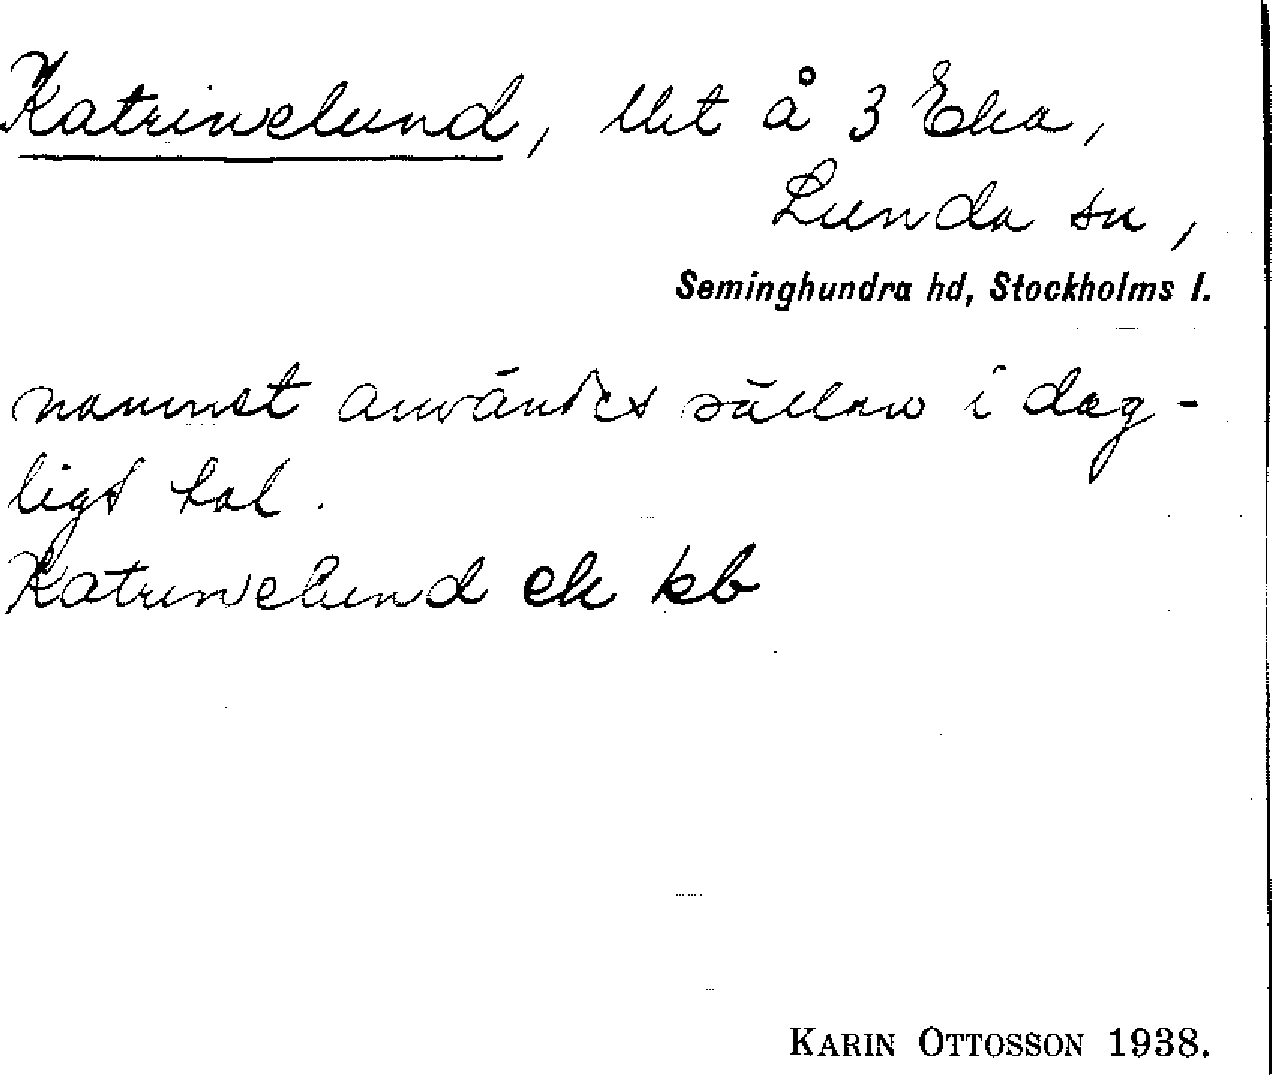 Katrinelund, lht å 3 Eka,
Lunda sn,
Seminghundra hd, Stockholms l.
namnet användes sällan i dag-
ligt tal.
Katrinelund ek kb
KARIN OTTOSSON 1938.